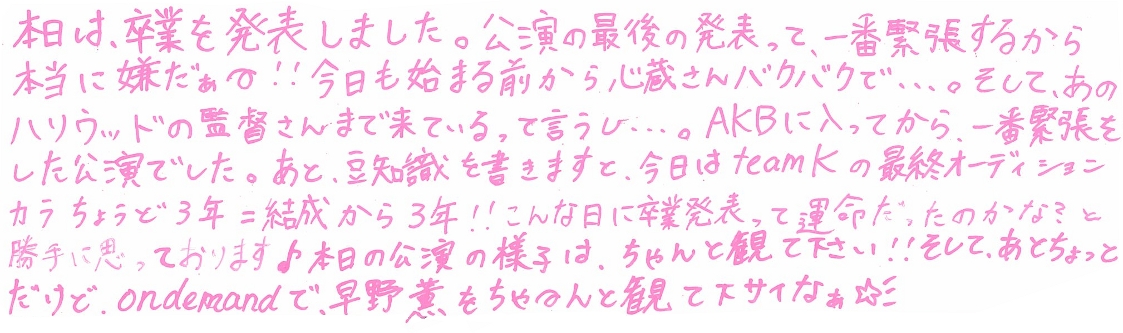 本日は、卒業を発表しました。公演の最後の発表って、一番緊張するから
本当に嫌だぁの!!今日も始まる前から心蔵さんバクバクで...。そして、あの
ハリウッドの監督さんまで来ているって言うし...。AKBに入ってから、一番緊張を
した公演でした。あと、豆知識を書きますと、今日はteamKの最終オーディション
カラちょうど3年=結成から3年!!こんな日に卒業発表って運命だったのかな?と
勝手に思っております♪本日の公演の様子は、ちゃんと観て下さい!!そして、あとちょっと
だけど、ondemandで、早野薫をちゃ〜んと観て下サイなぁ☆彡